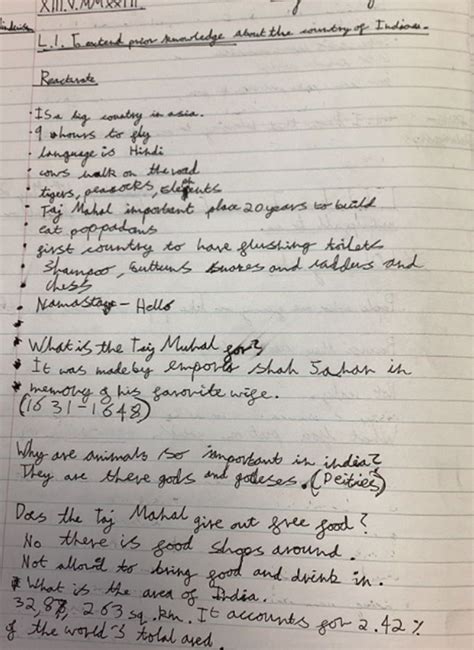 XIII.V.MMXXIII
Hinduism
L.I. To extend prior knowledge about the country of Indian.
Reactivate
• Is a big country in asia.
• 9 hours to fly
• language is Hindi
• cows walk on the road
• tigers, peacocks,
• Taj Mahal important place 20 years to build
• eat poppadoms
first country to have flushing toilets
• shampoo, buttons snakes and ladders and
chess
• Namastay - Hello
• What is the Taj Muhal for?
• It was made by emporer shah Jahan in
• memory of his favorite wife.
(1631-1648)
Why are animals so important in india?
They are there gods and godeses. (Deities)
Does the Taj Mahal give out free food?
No there is food shops around.
Not allowd to bring food and drink in.
• What is the area of India.
32,87, 263 sq. km. It accounts for 2.42 %
of the world's total area.